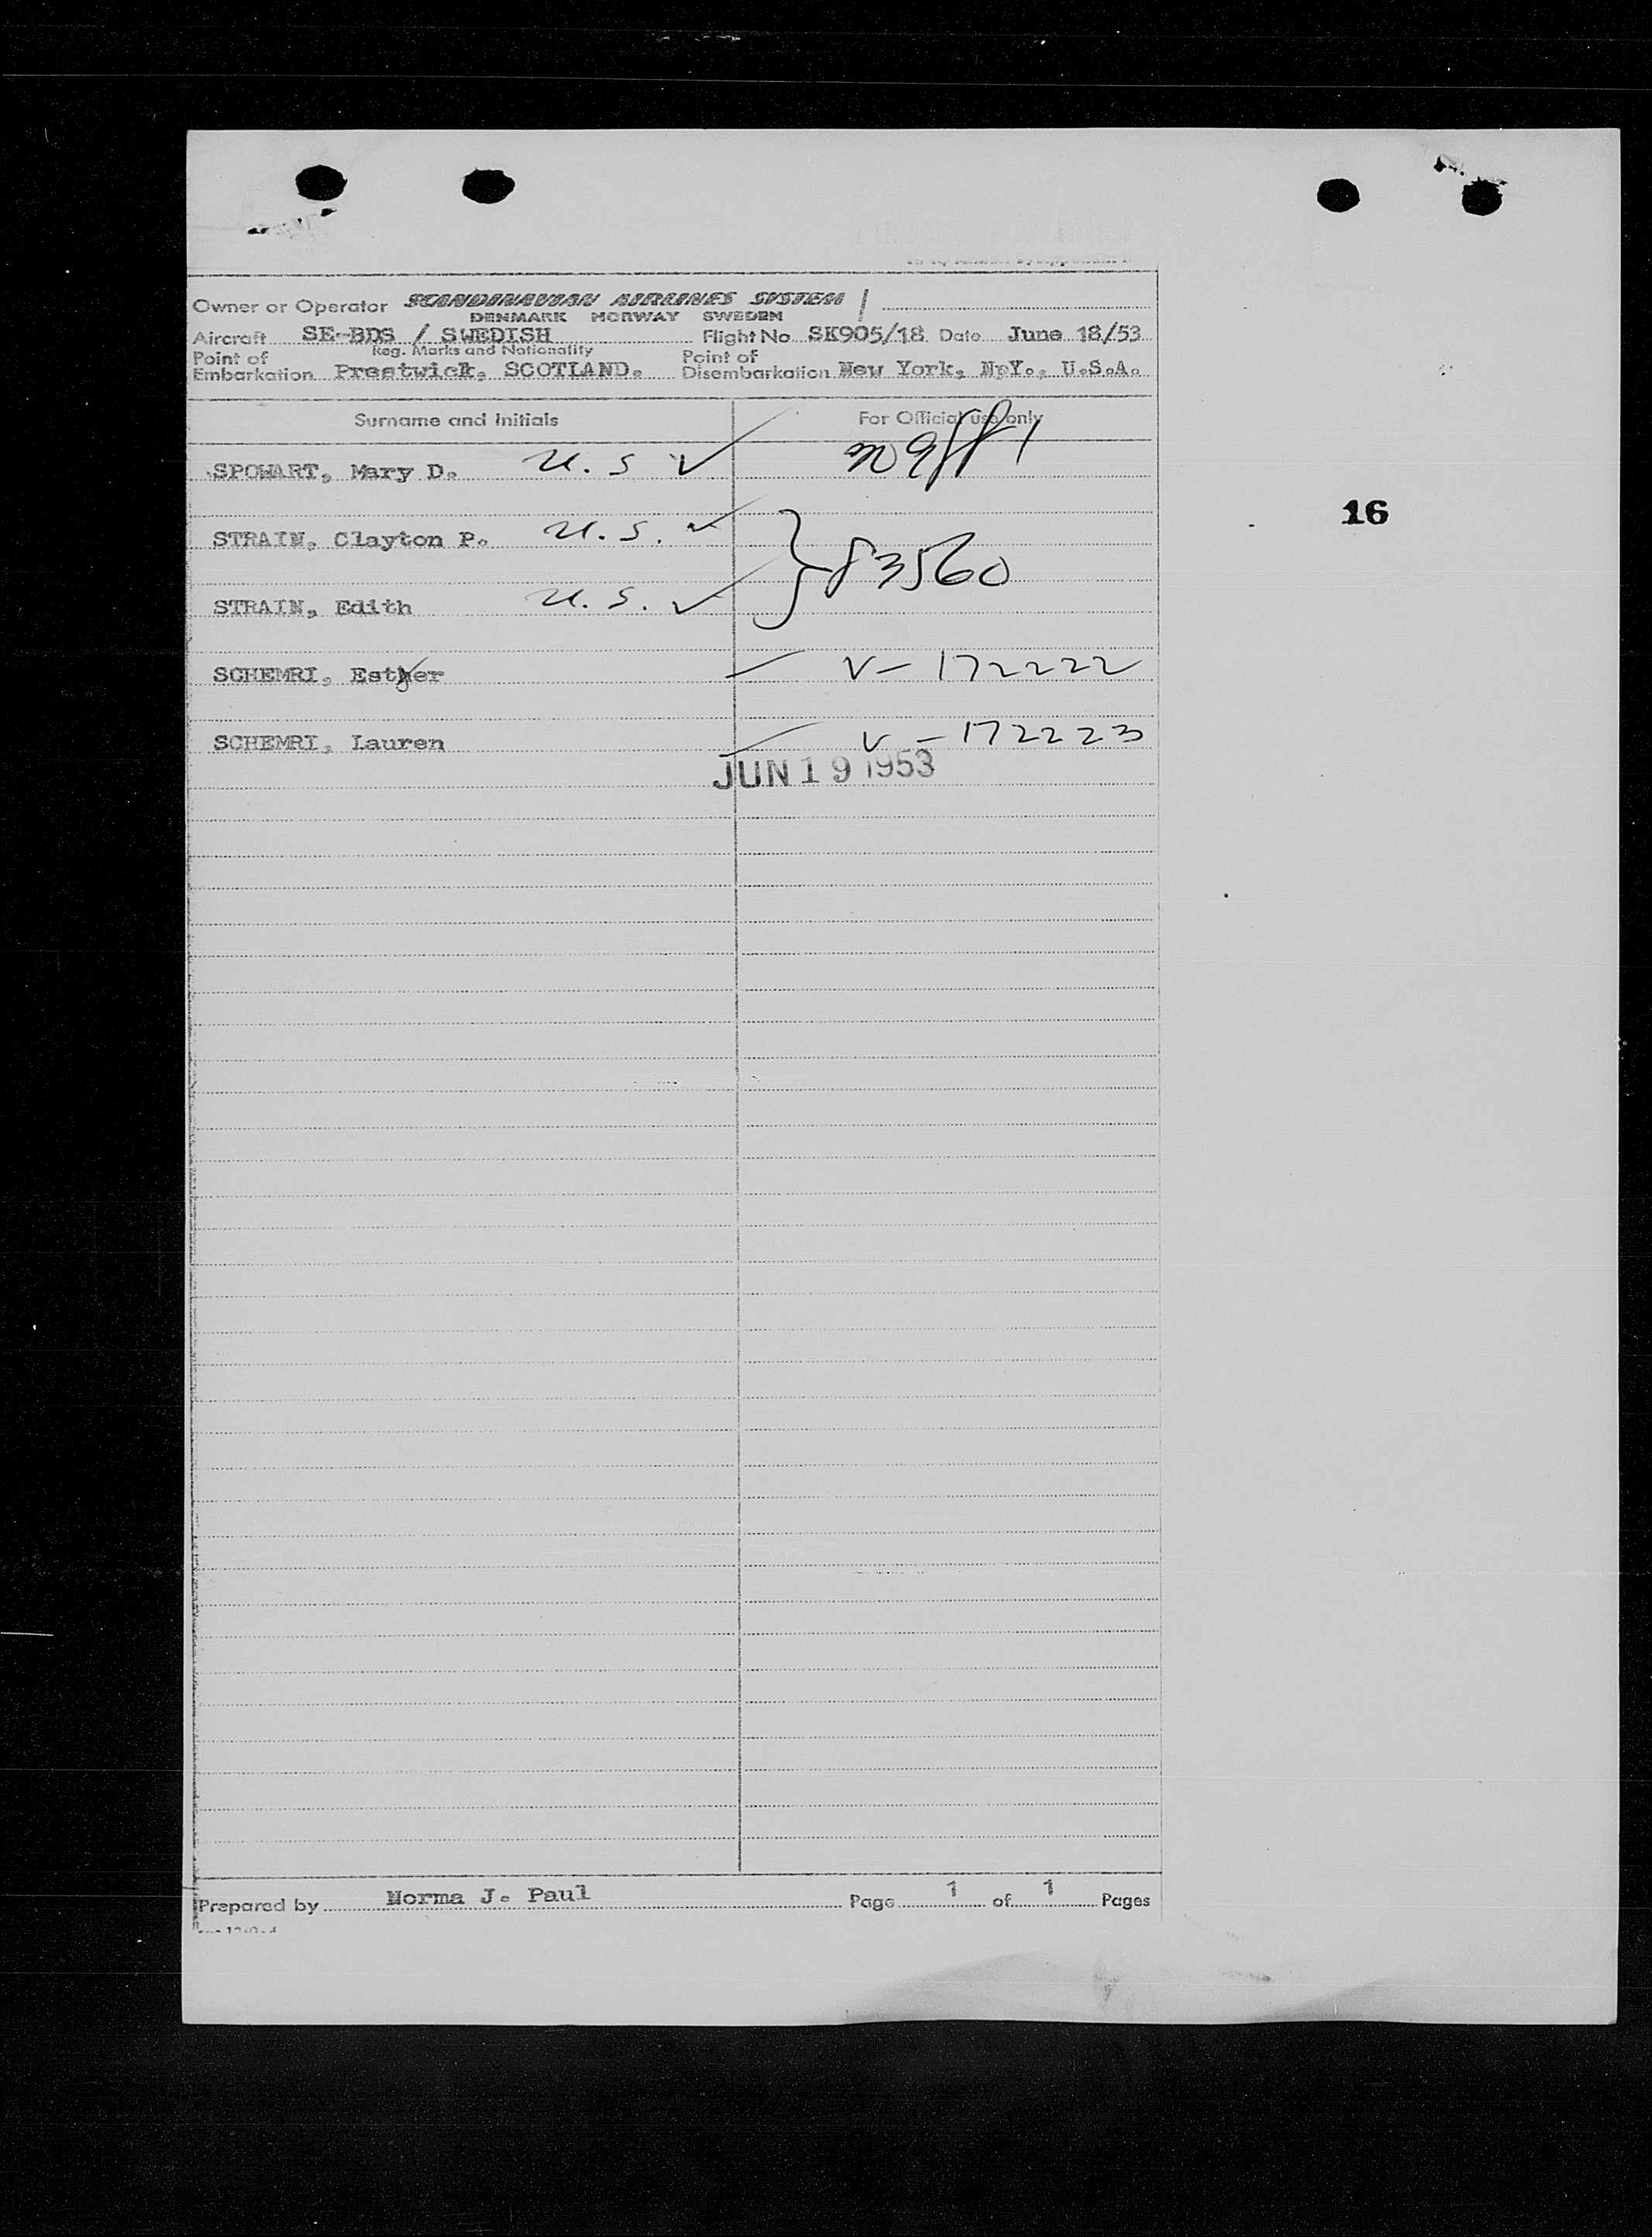 Owner or Operator SCANDINAVIAN AIRLINES SYSTEM
DENMARK NORWAY SWEDEN
Aircraft SE-BDS / SWEDISH Flight No SK905/18 Date June 18/53
Reg. Marks and Nationality
Point of Embarkation Prestwick, SCOTLAND. Point of Disembarkation New York, N.Y., U.S.A.
Surname and Initials For Official use only
SPOWART, Mary D. U.S
16
STRAIN, Clayton P. U.S.
83560
STRAIN, Edith U.S.
SCHEMRI, Esther V-172222
SCHEMRI, Lauren V-172223
JUN 19 1953
Prepared by Norma J. Paul Page 1 of 1 Pages